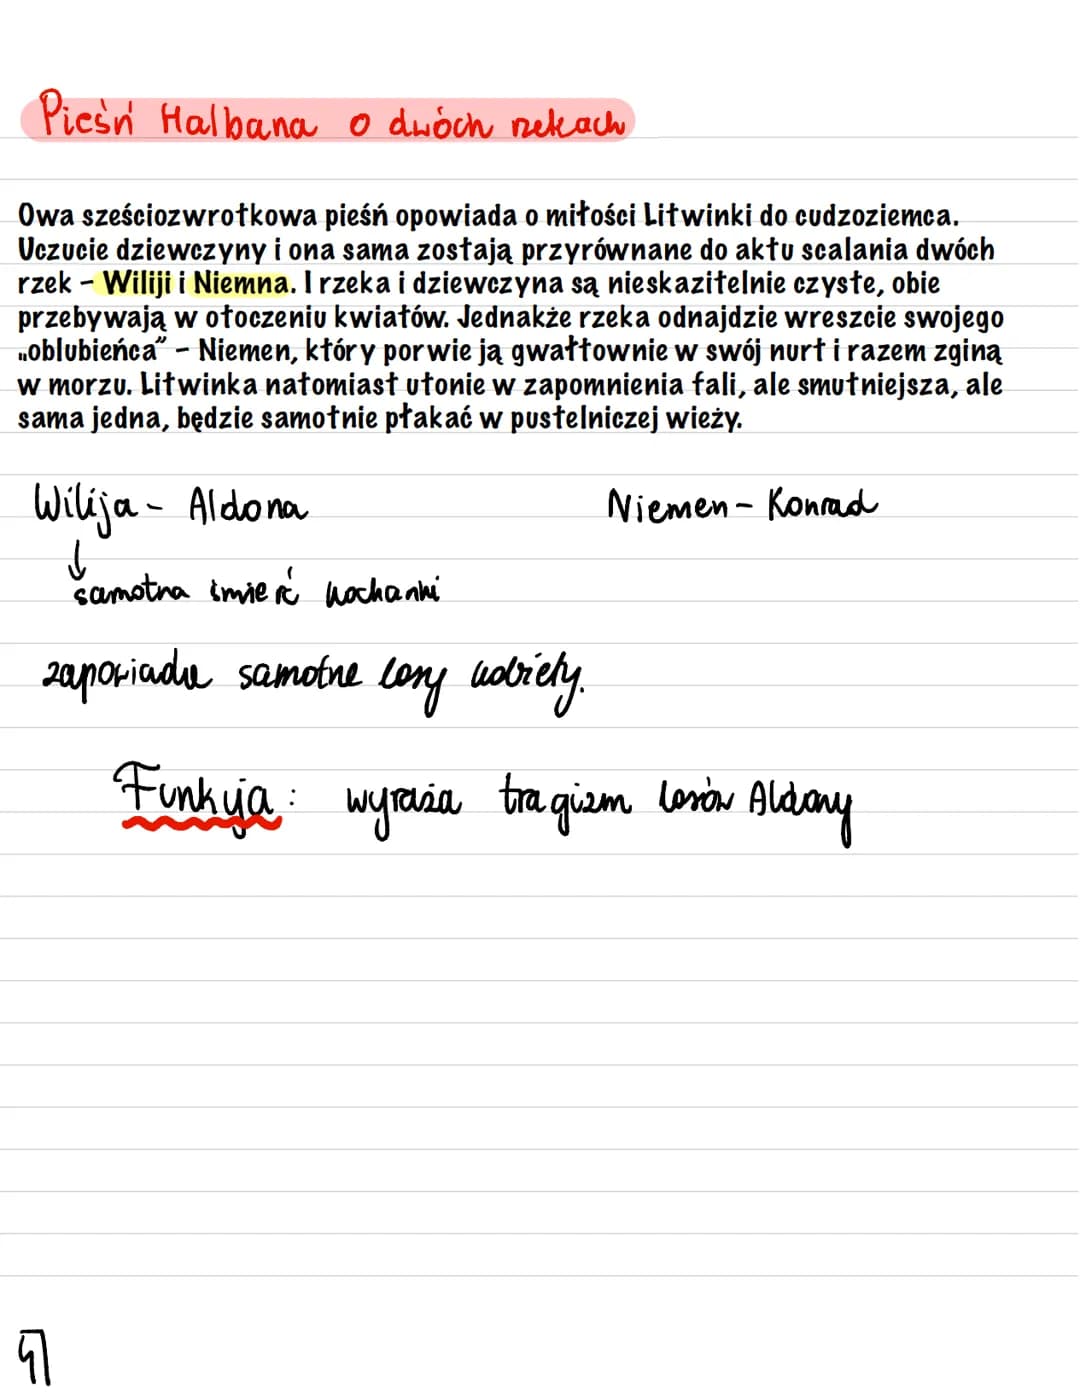 Pieśń Halbana o dwóch rzekach
Owa sześciozwrotkowa pieśń opowiada o miłości Litwinki do cudzoziemca.
Uczucie dziewczyny i ona sama zostają przyrównane do aktu scalania dwóch
rzek – Wiliji i Niemna. I rzeka i dziewczyna są nieskazitelnie czyste, obie
przebywają w otoczeniu kwiatów. Jednakże rzeka odnajdzie wreszcie swojego
„oblubieńca” – Niemen, który porwie ją gwałtownie w swój nurt i razem zginą
w morzu. Litwinka natomiast utonie w zapomnienia fali, ale smutniejsza, ale
sama jedna, będzie samotnie płakać w pustelniczej wieży.
Wilija - Aldona Niemen - Konrad
↓
samotna śmierć kochanki
zapowiada samotne losy kobiety.
Funkcja: wyraża tragizm losów Aldony